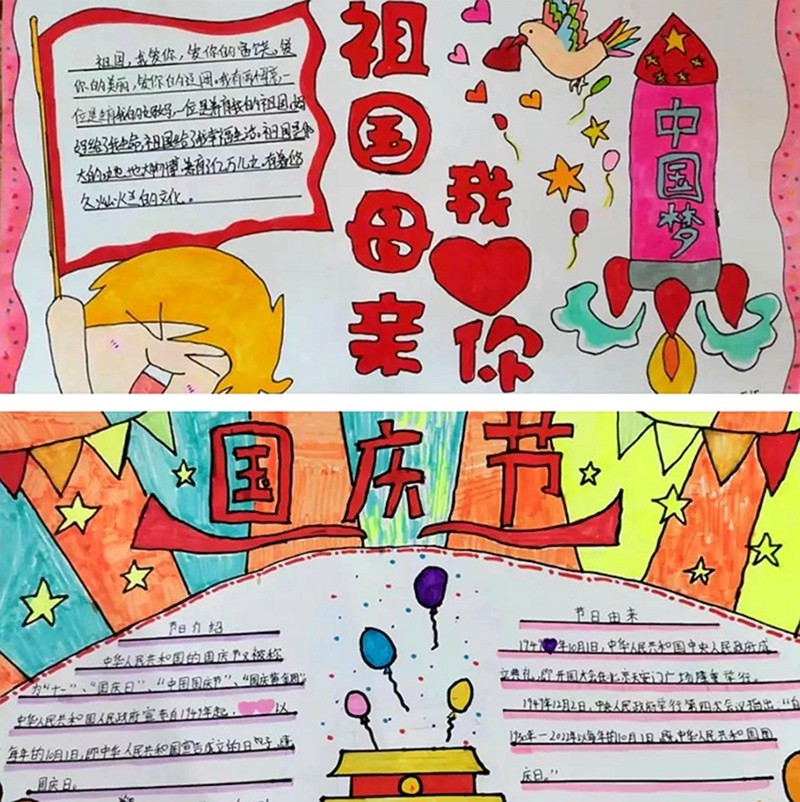 祖国,我爱你,爱你的富饶,爱
你的美丽,爱你的辽阔。我有两母亲,一
给了我生命,祖国给了我幸福生活。祖国是伟
大的
久灿烂的文化。
祖国母亲
我
你
中国梦
国庆节
节日介绍
中华人民共和国的国庆节又被称
为“十一”、“国庆日”、“中国国庆节”、“国庆黄金周”
中华人民共和国人民政府宣告自1949年起, 以
每年的10月1日,即中华人民共和国宣告成立的日子,为
国庆日。
节日由来
1949年10月1日,中华人民共和国中央人民政府成
立典礼,即开国大会在北京天安门广场隆重举行。
1949年12月2日,中央人民政府举行第四次会议指出:“自
1950年一 以每年的10月1日, 中华人民共和国国
庆日。”